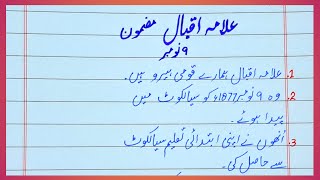 علامہ اقبال مضمون
۹ نومبر
1. علامہ اقبال ہمارے قومی ہیرو ہیں۔
2. وہ ۹ نومبر 1877ء کو سیالکوٹ میں
پیدا ہوئے۔
3. اُنھوں نے اپنی ابتدائی تعلیم سیالکوٹ
سے حاصل کی۔